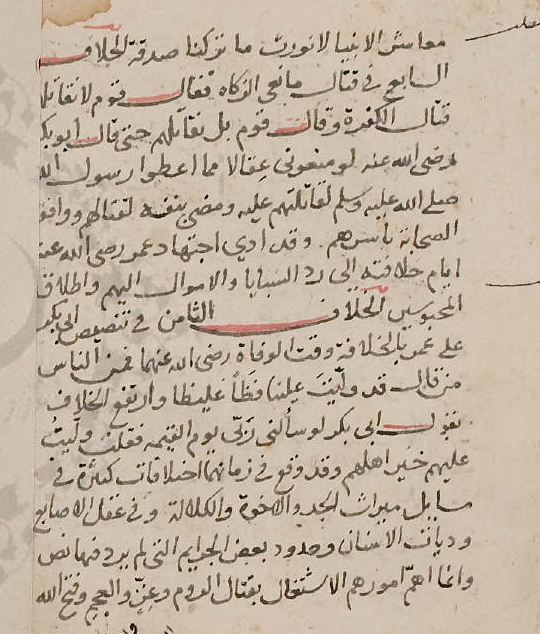 معاشر الانبيا لا نورث ما تركنا صدقة الخلاف
السابع في قتال مانعي الزكاه فقال قوم لا نقاتلهم
قتال الكفرة وقالت قوم بل نقاتلهم حتى قال ابو بكر
رضى الله عنه لو منعونى عقالا مما اعطوا رسول الله
صلى الله عليه وسلم لقاتلتهم عليه ومضى بنفسه لقتالهم ووافقه
الصحابة باسرهم وقد ادى اجتهاد عمر رضى الله عنه
ايام خلافته الى رد السبايا والاموال اليهم واطلاق
المحبوسين الخلاف الثامن في تنصيص ابى بكر
على عمر بالخلافة وقت الوفاة رضى الله عنهما فمن الناس
من قال قد وليت علينا فظا غليظا وارتفع الخلاف
بقول ابى بكر لو سألنى ربى يوم القيمه فقلت وليت
عليهم خير اهلهم وقد وقع في زمانهما اختلافات كثيرة في
مسايل ميراث الجد والاخوة والكلالة وفى عقل الاصابع
وديات الاسنان وحدود بعض الجرايم التى لم يرد فيها نص
وانما اهم امورهم الاشتغال بقتال الروم وغزو العجم وفتح الله